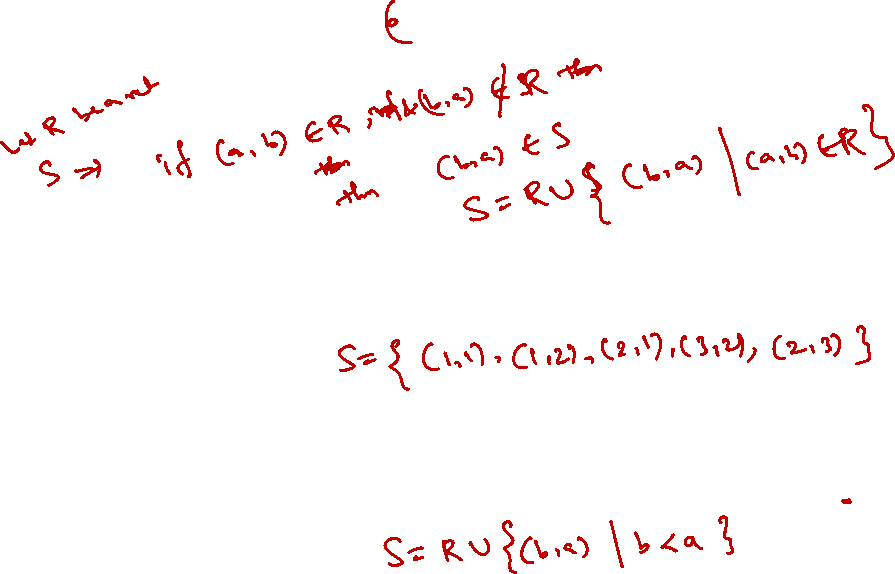 (
let R be a set
S ⇒ if (a,b) ∈ R, (b,a) ∉ R then
then (b,a) ∈ S
then S = R ∪ { (b,a) | (a,b) ∈ R }
S = { (1,1), (1,2), (2,1), (3,2), (2,3) }
S = R ∪ { (b,a) | b < a }